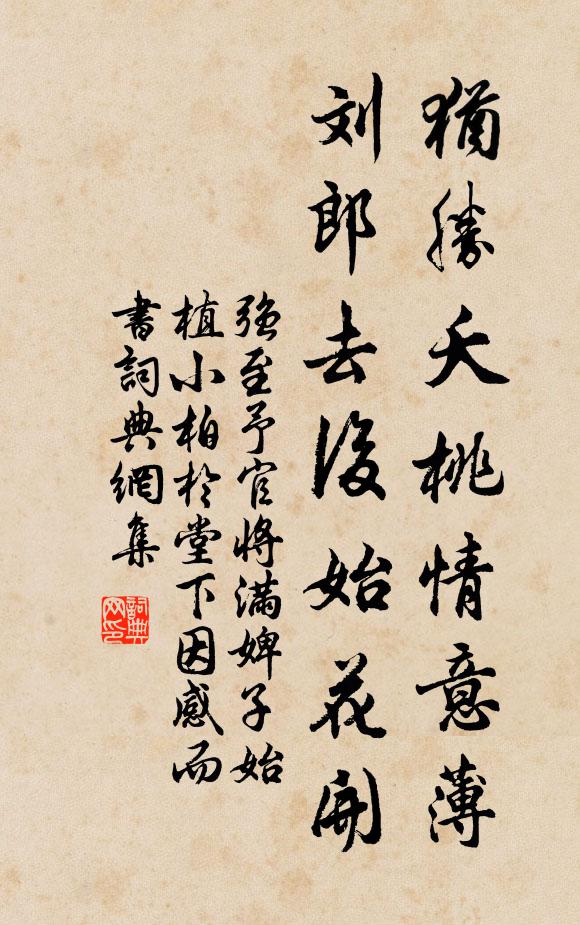 猶勝夭桃情意薄
刘郎去後始花開
強至予官將滿婢子始
植小柏於堂下因感而
書詞典網集
詞典
网印